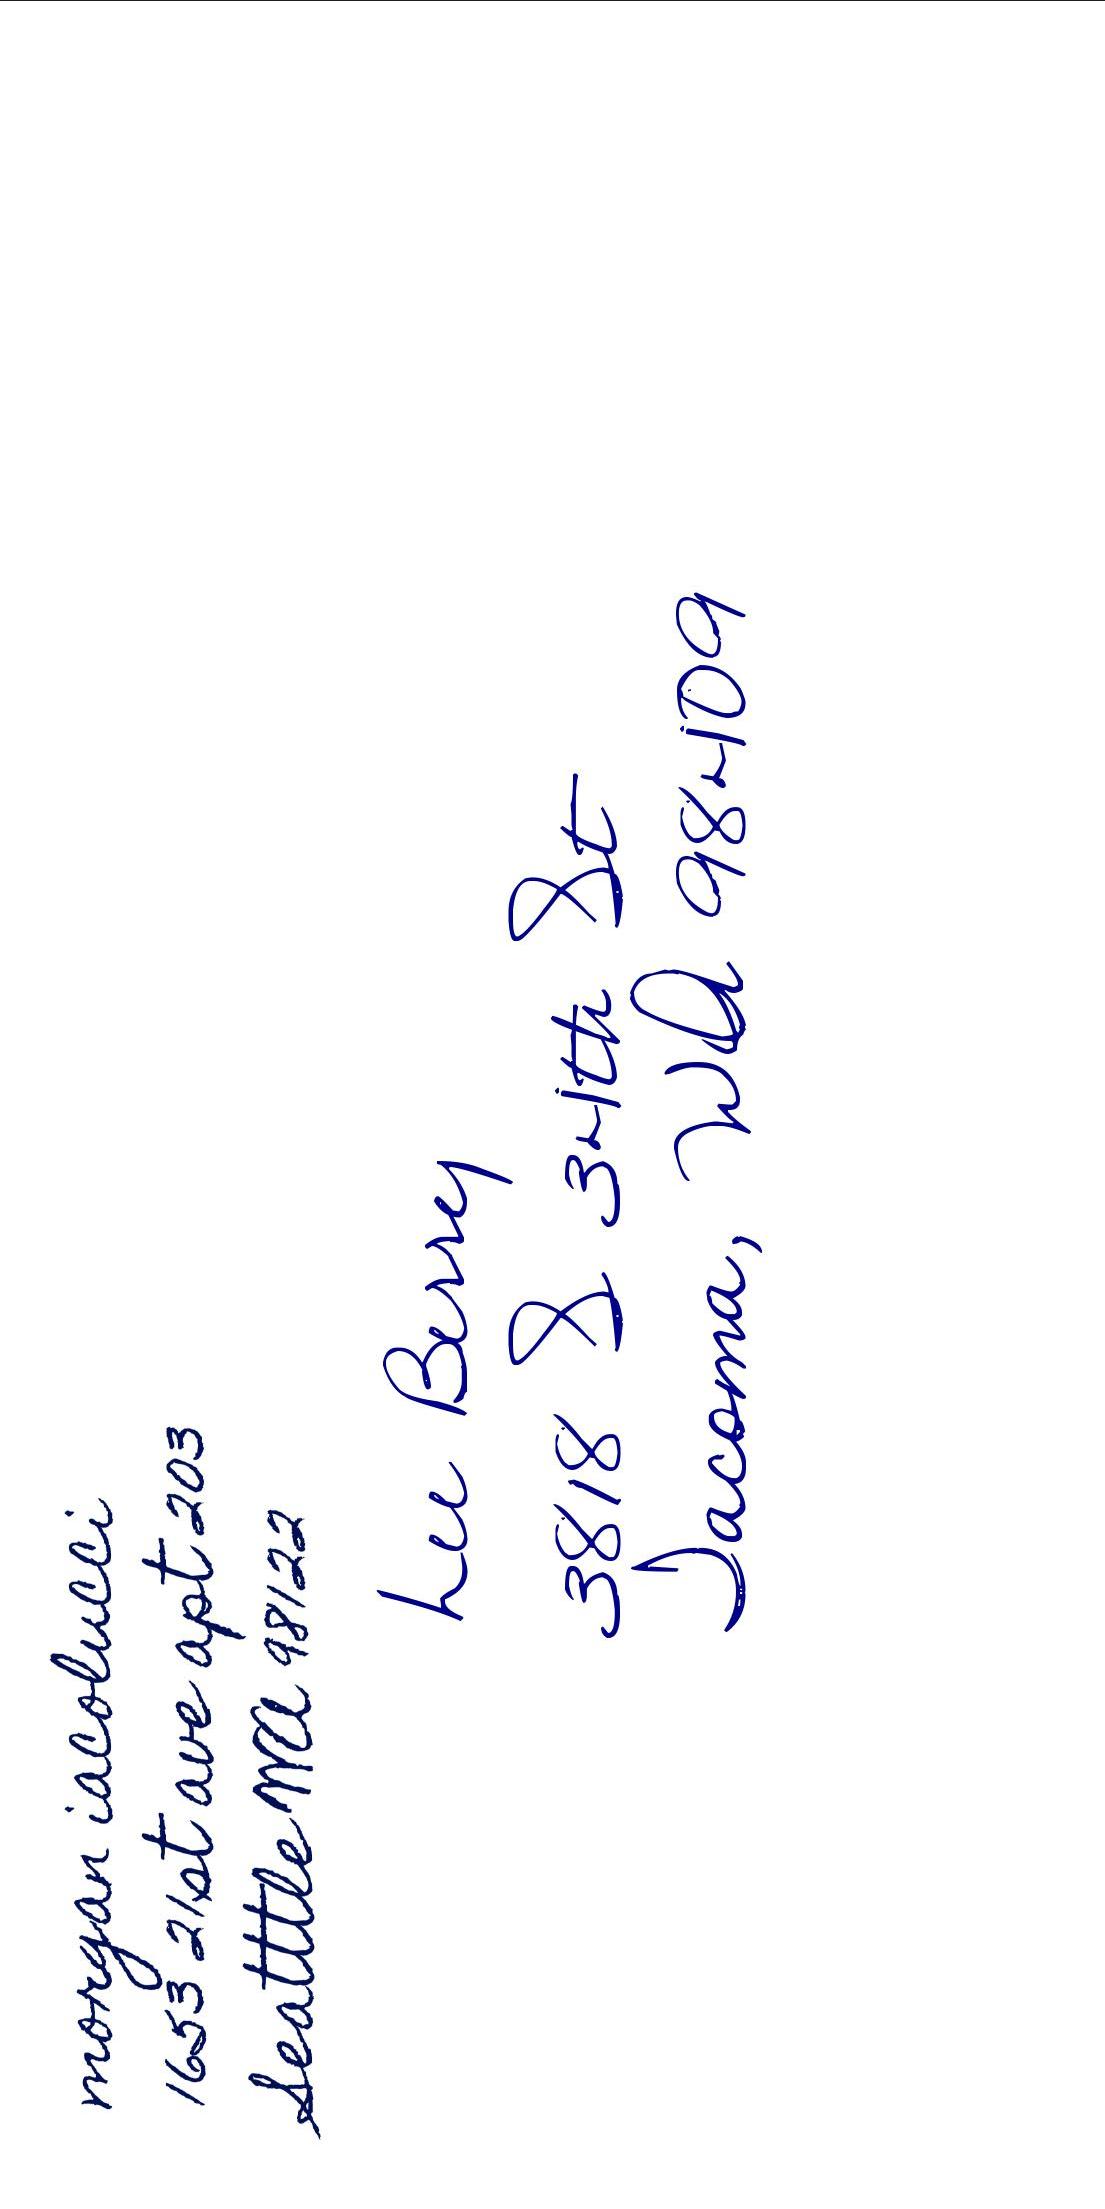 morgan iacolucci
1653 21st ave apt 203
Seattle WA 98122
Lee Berry
3818 S 34th St
Tacoma, WA 98409